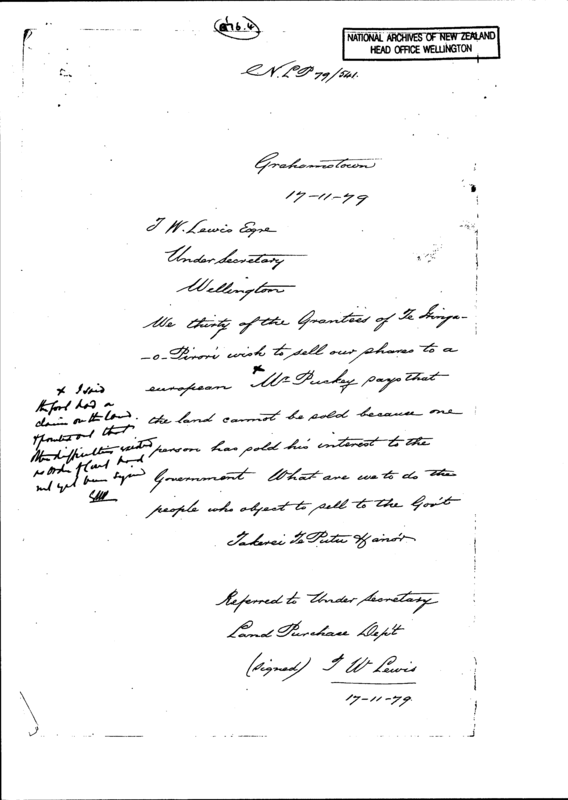 NATIONAL ARCHIVES OF NEW ZEALAND
HEAD OFFICE WELLINGTON
N.L.P 79/541.
Grahamstown
17-11-79
T W. Lewis Esqre
Under Secretary
Wellington
We thirty of the Grantees of Te
-o-Pirori wish to sell our shares to a
european x Mr Puckey says that
the land cannot be sold because one
person has sold his interest to the
Government What are we to do the
people who object to sell to the Gov't
Takerei Te Putu & anor
x I said
the Govt had a
claim on the land
& pointed out that
other difficulties existed
no order of Court had
yet been signed
Referred to Under Secretary
Land Purchase Dep't
(signed) T W Lewis
17-11-79